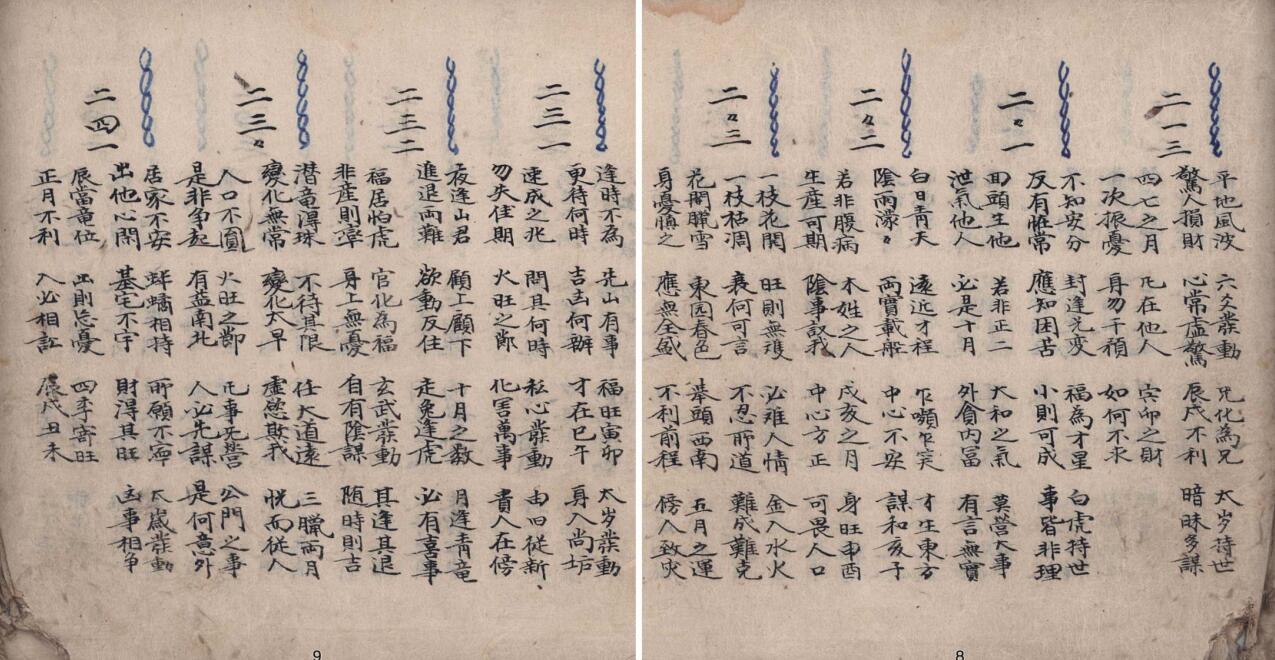 二一三
平地風波 六爻發動 兄化為兄 太岁持世
驚人損財 心常虛驚 辰戌不利 暗昧多謀
四七之月 凡在他人 寅卯之財
一次振憂 身勿干預 如何不求
二々一
不知安分 封逢元变 福為才星 白虎持世
反有惟常 應知困苦 小則可成 事皆非理
回頭生他 若非正二 大和之氣 莫營大事
泄氣他人 必是十月 外貪內富 有言無實
二々二
白日青天 遠近才程 乍嚬乍笑 才生東方
陰雨濛々 両寶載船 中心不安 謀和亥子
若非腹病 木姓之人 戌亥之月 身旺申酉
生産可期 陰事 我 中心方正 可畏人口
二々三
一枝花開 旺則無 必雖人情 金入水火
一枝枯凋 衰何可言 不忍所道 難成難克
花開臘雪 東园春色 挙頭西南 五月之運
身憂愼之 應無全盛 不利前程 傍人致灾
二三一
逢時不為 先山有事 福旺寅卯 太岁發動
更待何時 吉凶何辦 才在巳午 身入尚垢
速成之兆 問其何時 私心發動 由旧從新
勿失佳期 火旺之節 化害萬事 貴人在傍
二三二
夜逢山君 顧上顧下 十月之数 月逢青竜
進退両難 欲動反住 走兔逢虎 必有喜事
福居怕虎 官化為福 玄武發動 其逢其退
非産則孕 身上無憂 自有陰謀 随時則吉
二三々
潜竜得珠 不待其限 任大道遠 三臘両月
變化無常 變化太早 虛慾欺我 恍而從人
人口不圓 火旺之節 凡事死營 公門之事
是非争起 有益南北 人必先謀 是何意外
二四一
居家不安 蚌 相持 所願不寧 太歲發動
出他心閑 基宅不宇 財得其旺 凶事相争
辰當竜位 出則忘憂 四季寄旺
正月不利 入必相訟 辰戌丑未
8
9